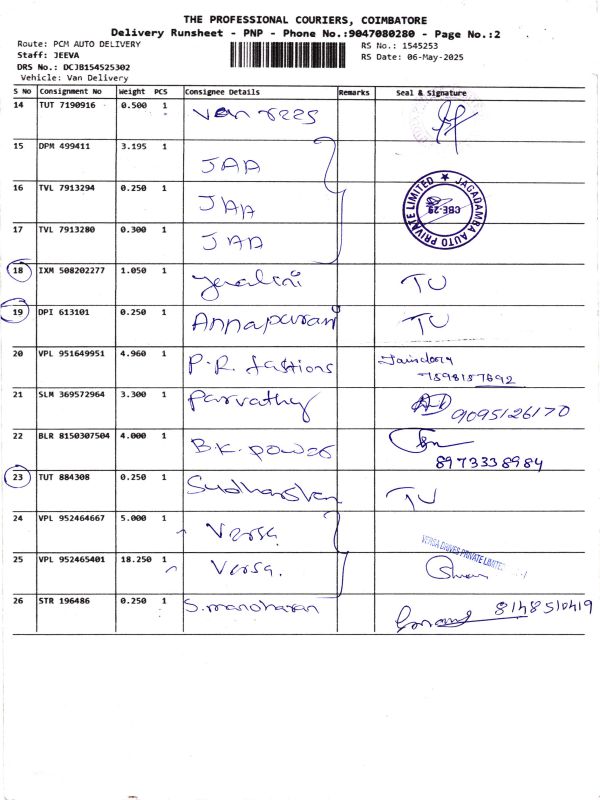 THE PROFESSIONAL COURIERS, COIMBATORE
Delivery Runsheet - PNP - Phone No.:9047080280 - Page No.:2
Route: PCM AUTO DELIVERY
RS No.: 1545253
Staff: JEEVA
RS Date: 06-May-2025
DRS No.: DCJB154525302
Vehicle: Van Delivery
S No Consignment No Weight PCS Consignee Details Remarks Seal & Signature
14 TUT 7190916 0.500 1 Van
15 DPM 499411 3.195 1 JAA
16 TVL 7913294 0.250 1 JAA
JAGADAMBA AUTO PRIVATE LIMITED ★ CBE-29
17 TVL 7913280 0.300 1 JAA
18 IXM 508202277 1.050 1 TU
19 DPI 613101 0.250 1 Annapurani TU
20 VPL 951649951 4.960 1 P.R. fastions
7598157692
21 SLM 369572964 3.300 1 Parvathy 9095126170
22 BLR 8150307504 4.000 1 B.K. power
8973338984
23 TUT 884308 0.250 1 Sudharshan TU
24 VPL 952464667 5.000 1 Versa.
VERSA DRIVES PRIVATE LIMITED
25 VPL 952465401 18.250 1 Versa.
26 STR 196486 0.250 1 S.manoharan 8148510419